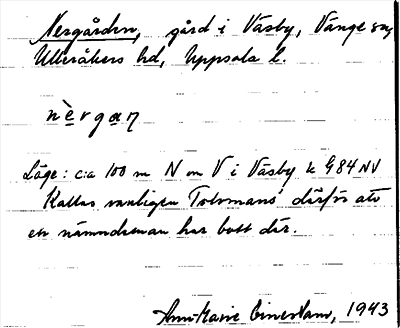 Nergården, gård i Väsby, Vänge sn,
Ulleråkers hd, Uppsala l.
nè̱rga̱ŋ
Läge: c:a 100 m N om V i Väsby k G84 NV
Kallas vanligen Tolvmans' därför att
en nämndeman har bott där.
Ann-Marie 1943